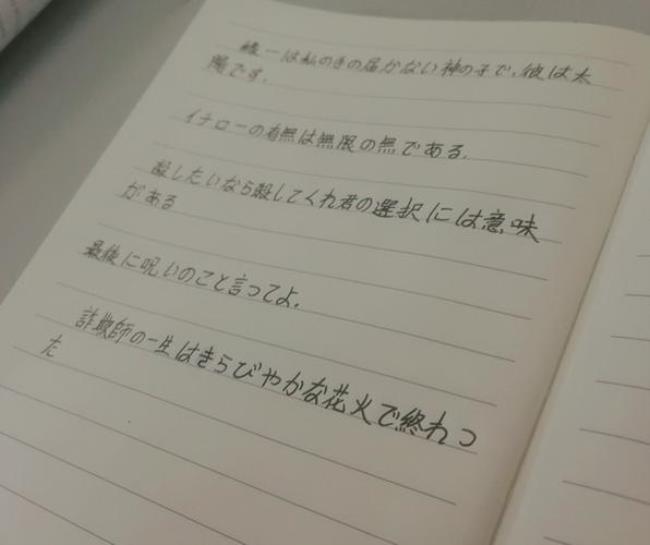 一は私のきの届かない神の子で、彼は太
陽です.
イチローの有無は無限の無である.
殺したいなら殺してくれ君の選択には意味
がある
最後に呪いのこと言ってよ.
詐欺師の一生はきらびやかな花火で終れっ
た